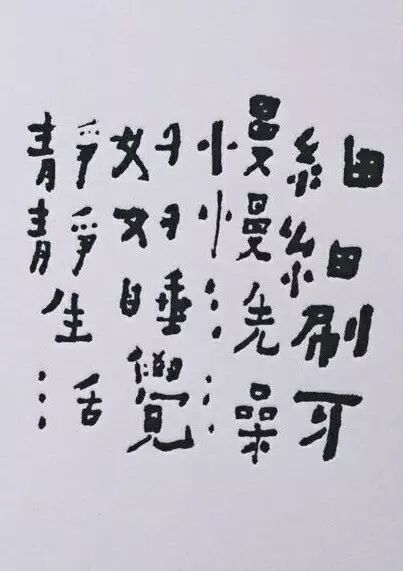 細細刷牙
慢慢洗澡
好好睡覺
靜靜生活